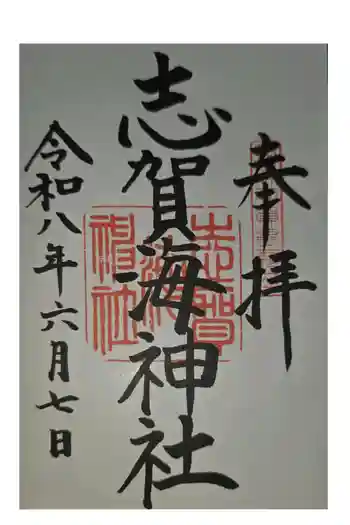 奉拝
志賀海神社
令和八年六月七日
志賀海神社